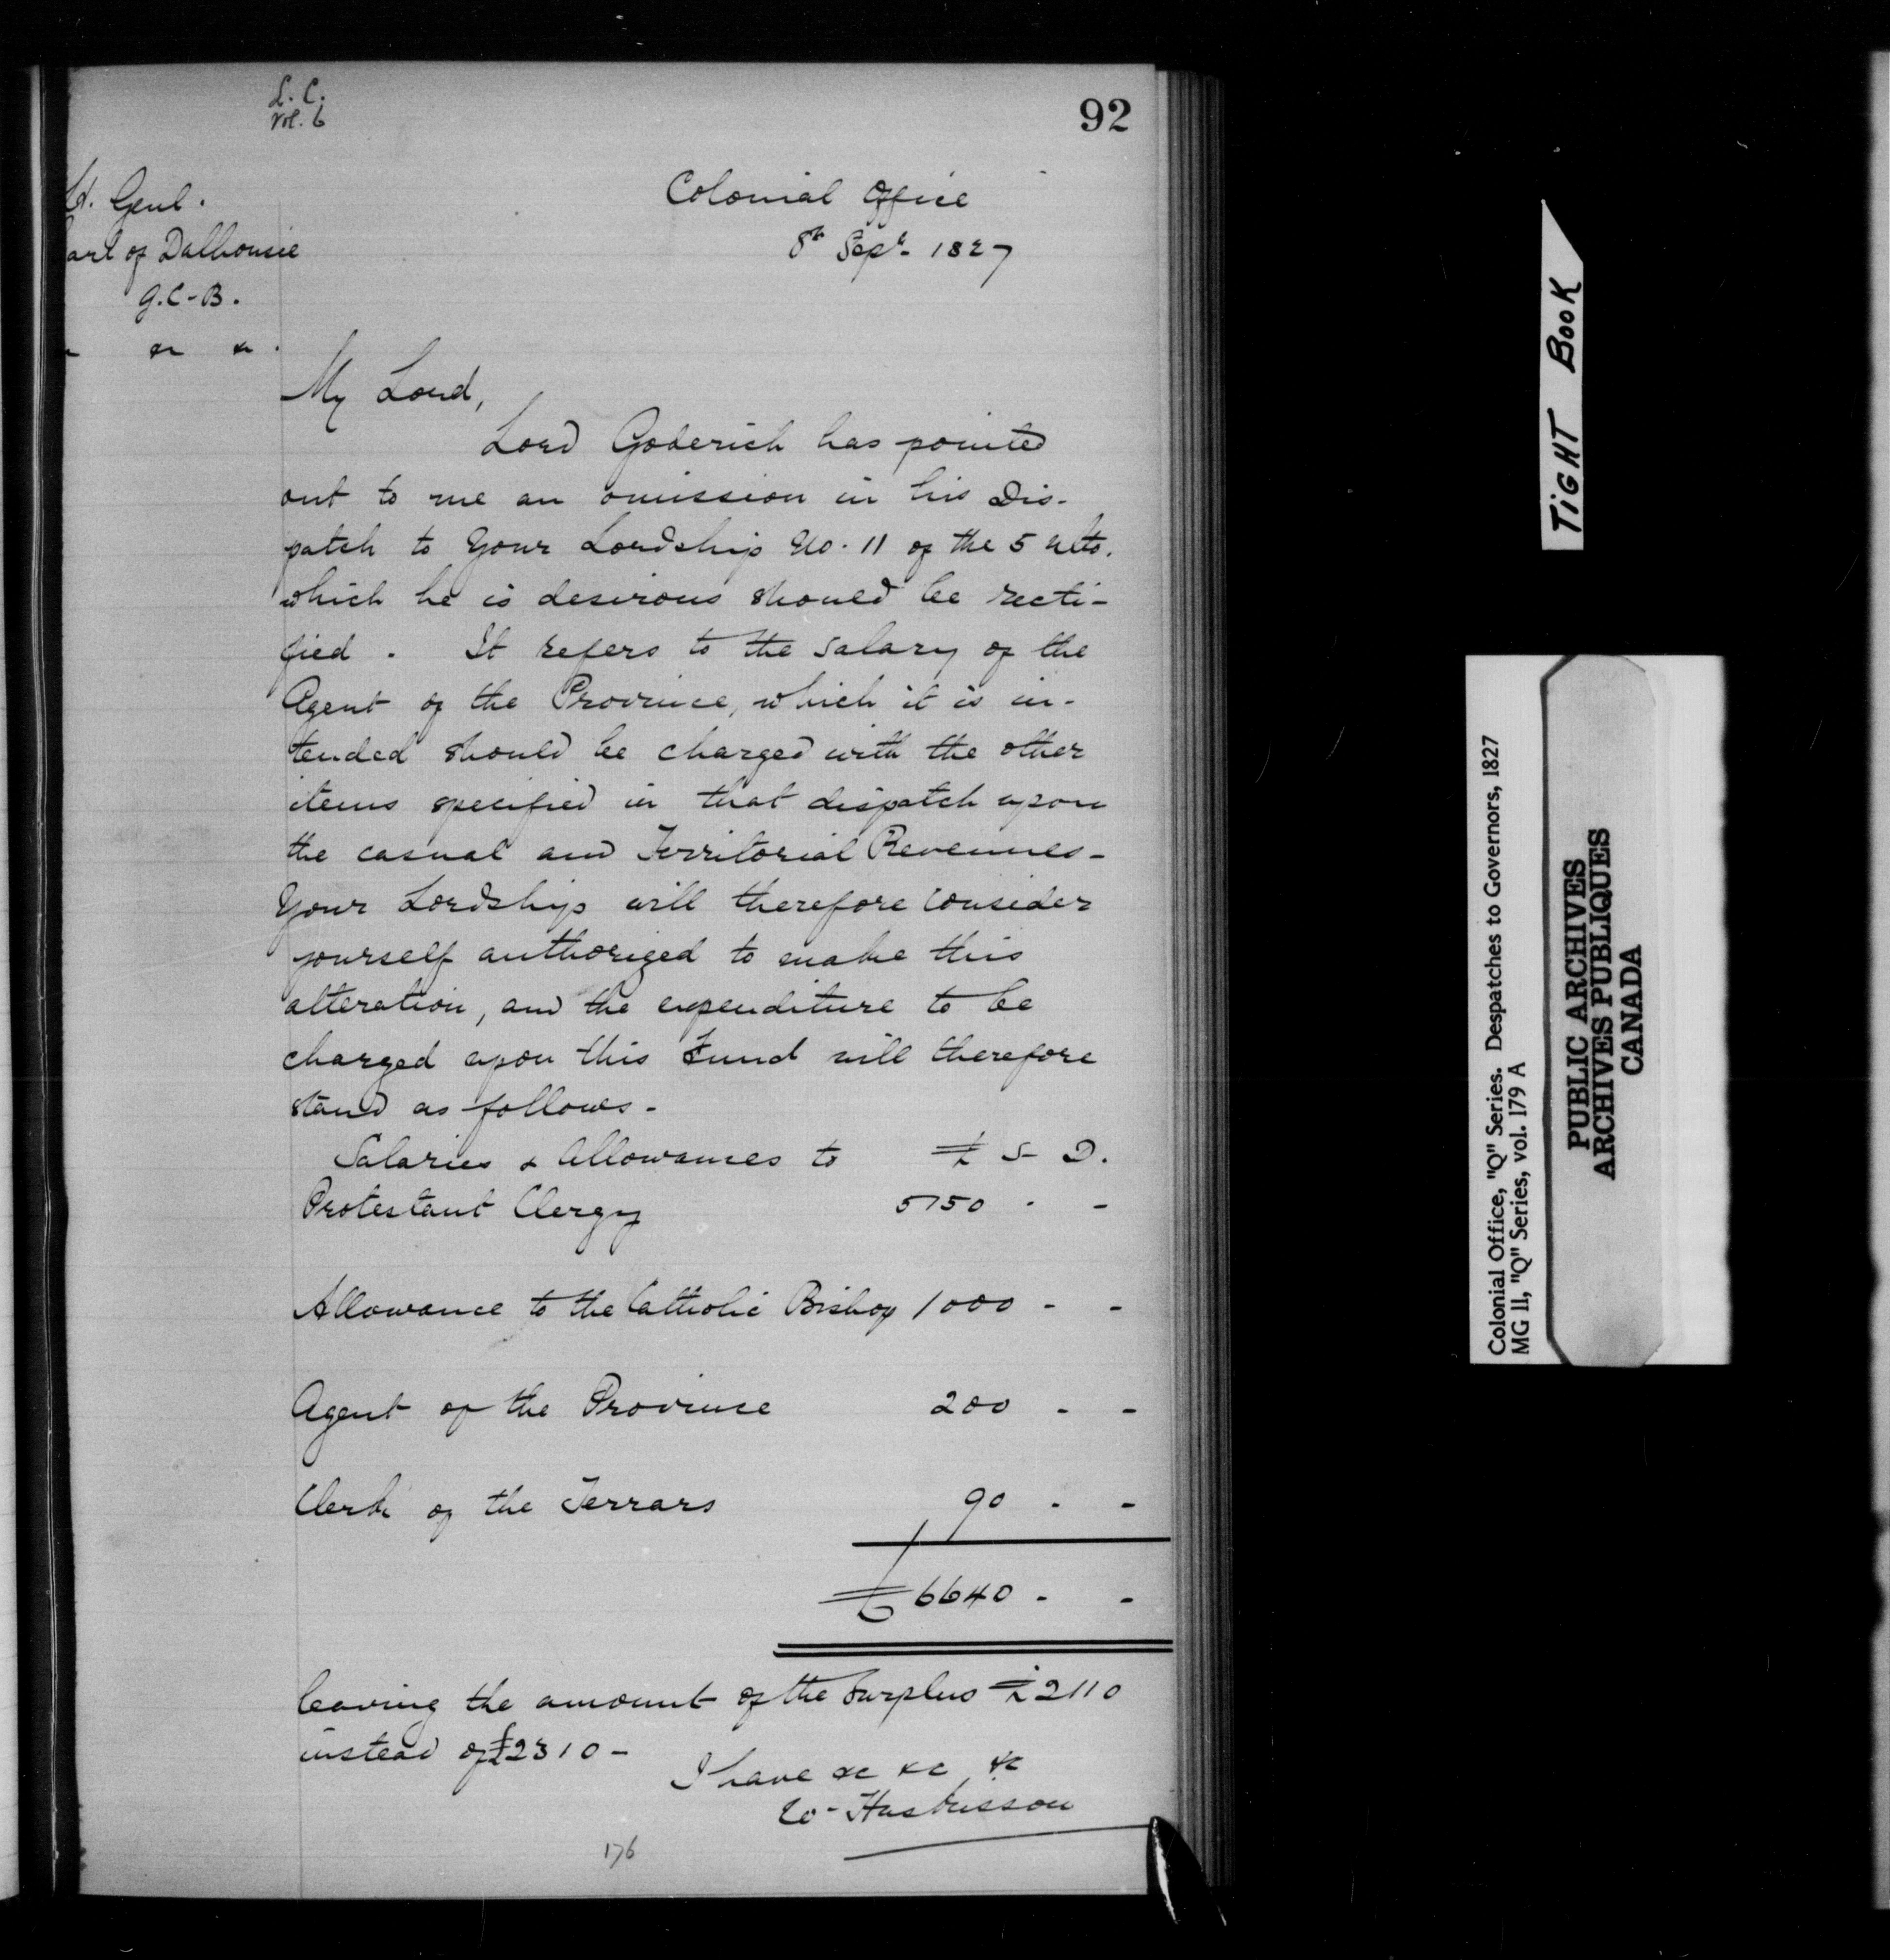 L. C.
Vol. 6
92
Lt. Genl.
Earl of Dalhousie
G.C-B.
&c &c.
Colonial Office
8th Sept. 1827
My Lord,
Lord Goderich has pointed
out to me an omission in his Dis-
patch to Your Lordship No. 11 of the 5 ulto.
which he is desirous should be recti-
fied. It refers to the salary of the
Agent of the Province, which it is in-
tended should be charged with the other
items specified in that dispatch upon
the casual and Territorial Revenues-
Your Lordship will therefore consider
yourself authorized to make this
alteration, and the expenditure to be
charged upon this Fund will therefore
stand as follows-
Salaries & Allowances to £ S D.
Protestant Clergy 5150 - -
Allowance to the Catholic Bishop 1000 - -
Agent of the Province 200 - -
Clerk of the Terrars 90 - -
£6640 - -
leaving the amount of the Surplus £2110
instead of £2310-
I have &c &c &c
W- Huskisson
176
TIGHT BOOK
Colonial Office, "Q" Series. Despatches to Governors, 1827
MG 11, "Q" Series, vol. 179 A
PUBLIC ARCHIVES
ARCHIVES PUBLIQUES
CANADA